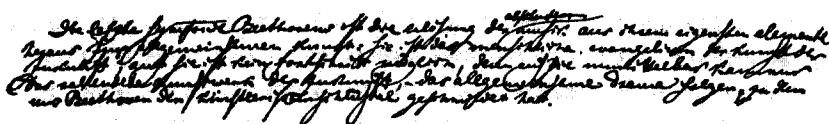 Die letzte Symfonie Beethovens ist die erlösung der musik aus ihrem eigensten elemente
heraus zur allgemeinsamen kunst. Sie ist das menschliche evangelium der kunst der
zukunft. auf sie ist kein fortschritt möglich, denn auf sie unmittelbar kann nur
das vollendete kunstwerk der zukunft, das allgemeinsame drama folgen, zu dem
uns Beethoven den künstlerischen schlüssel geschmiedet hat.